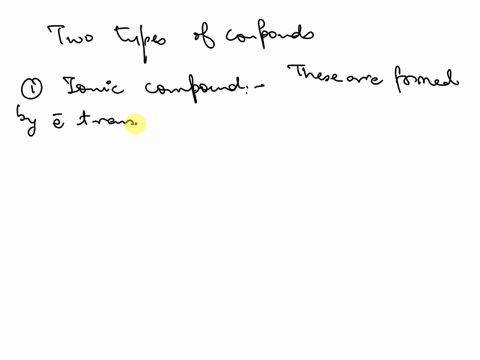 Two types of conponds
① Ionic compound:- These are formed
by ē trans.